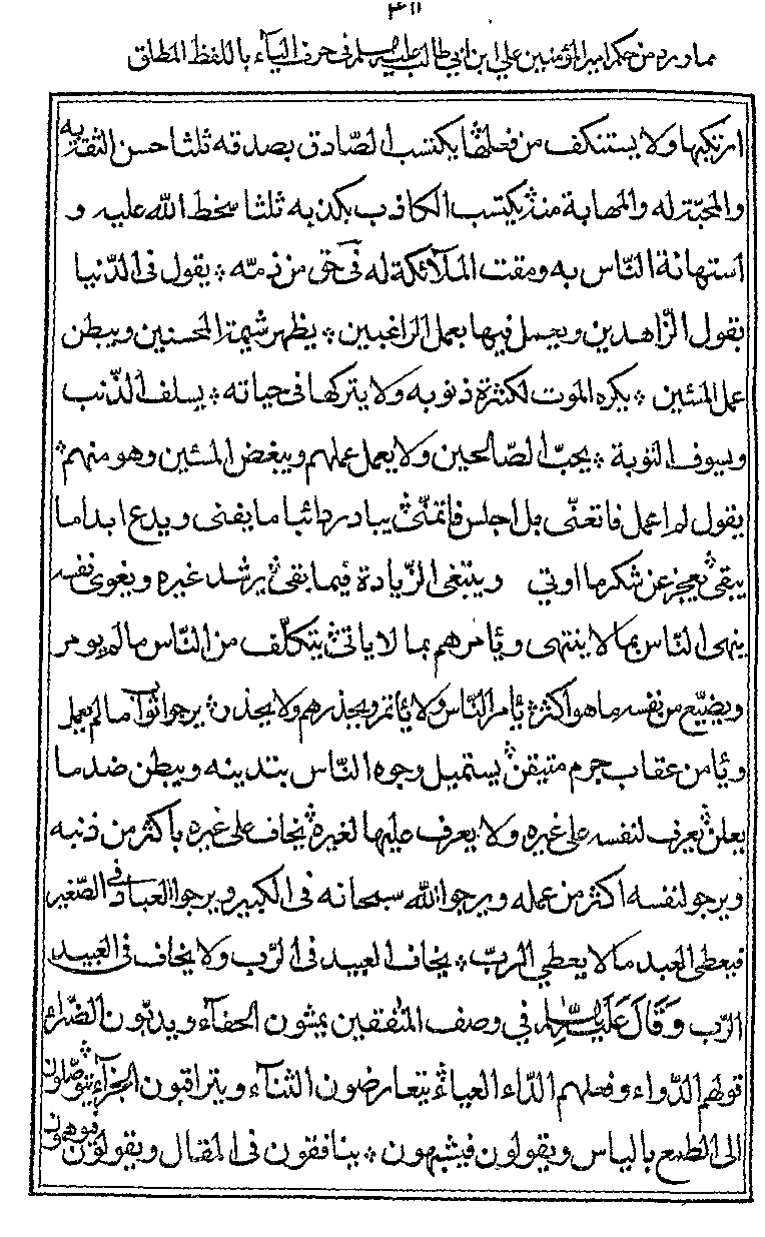 ٣١١
مما ورد من حكم امير المؤمنين علي ابن ابي طالب عليه السلم في حرف الياء باللفظ المطلق
ارتكبها ولا يستنكف من فعلها ۞ يكتسب الصّادق بصدقه ثلثا حسن الثقة به
والمحبّة له والمهابة منه ۞ يكتسب الكاذب بكذبه ثلثا سخط الله عليه و
استهانة النّاس به ومقت الملآئكة له في حق من ذمّه ۞ يقول في الدّنيا
بقول الزّاهدين ويعمل فيها بعمل الراغبين ۞ يظهر شيمة المحسنين ويبطن
عمل المسئين ۞ يكره الموت لكثرة ذنوبه ولا يتركها في حياته ۞ يسلف الذّنب
ويسوف التوبة ۞ يحبّ الصّالحين ولا يعمل عملهم ويبغض المسئين وهو منهم ۞
يقول لم اعمل فاتعنّى بل اجلس فاتمنّى ۞ يبادر دائبا ما يفنى ويدع ابدا ما
يبقى ۞ يعجز عن شكر ما اوتي ويبتغى الزّيادة فيما بقى ۞ يرشد غيره ويغوى نفسه
ينهى النّاس بما لا ينتهى ويأمرهم بما لا ياتى ۞ يتكلّف من النّاس ما لم يومر
ويضيّع من نفسه ما هو اكثر ۞ يأمر النّاس ولا يأتمر ويحذرهم ولا يحذر ۞ يرجوا ثواب ما لم يعمل
ويأمن عقاب جرم متيقن ۞ يستميل وجوه النّاس بتدينه ويبطن ضد ما
يعلن ۞ يعرف لنفسه على غيره ولا يعرف عليها لغيره ۞ يخاف على غيره باكثر من ذنبه
ويرجو لنفسه اكثر من عمله ويرجوا الله سبحانه في الكبير ويرجوا العباد في الصّغير
فيعطى العبد ما لا يعطي الربّ ۞ يخاف العبيد في الرّب ولا يخاف في العبيد
الرّب وَقَالَ عَلَيْهِ السَّلَام في وصف المنٰفقين يمشون الخفآء ويدبّون الضّراء
قولهم الدّواء وفعلهم الدّاء العياء ۞ يتعارضون الثنآء ويتراقبون الجزآء ۞ يتوصّلون
الى الطمع بالياس ويقولون فيشبهون ۞ ينافقون في المقال ويقولون فيوهمون